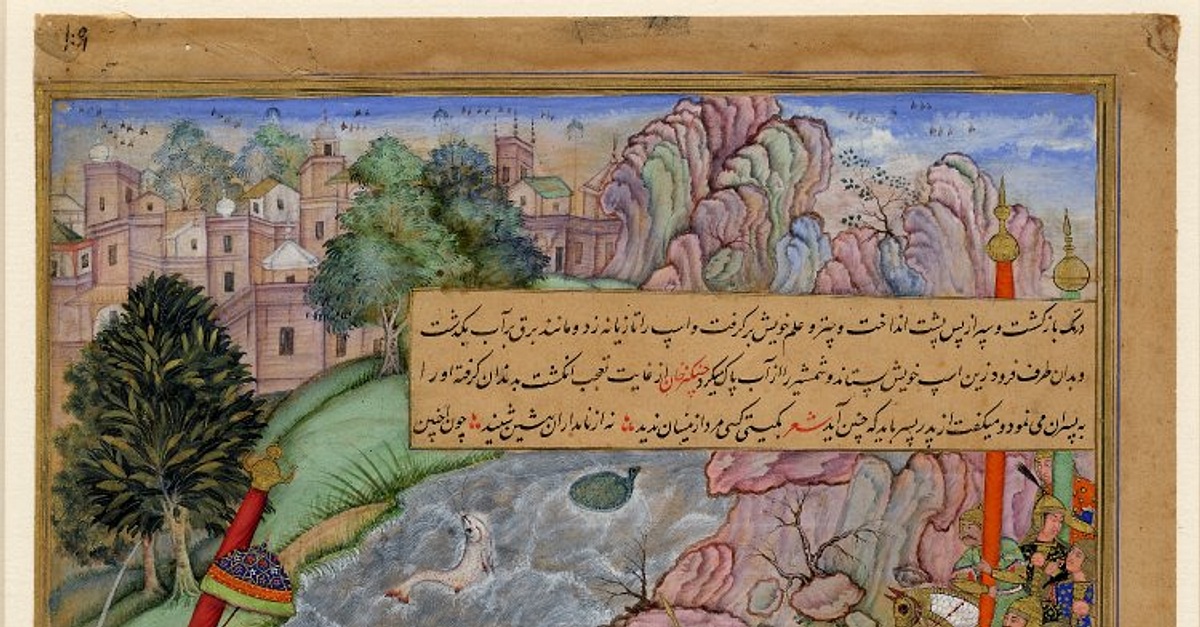 درنگ بازگشت و سپر از پس پشت انداخت و چتر و علم خویش برگرفت و اسپ را تازیانه زد و مانند برق بر آب بگذشت
و بدان طرف فرود زین اسپ خویش بستاند و شمشیر را از آب پاک میکرد چنگیز خان از غایت تعجب انگشت بدندان گرفته او را
به پسران می نمود و میگفت از پدر پسر باید که چنین آید شعر بگیتی کسی مرد ازینسان ندید نه از نامداران پیشین شنید چون